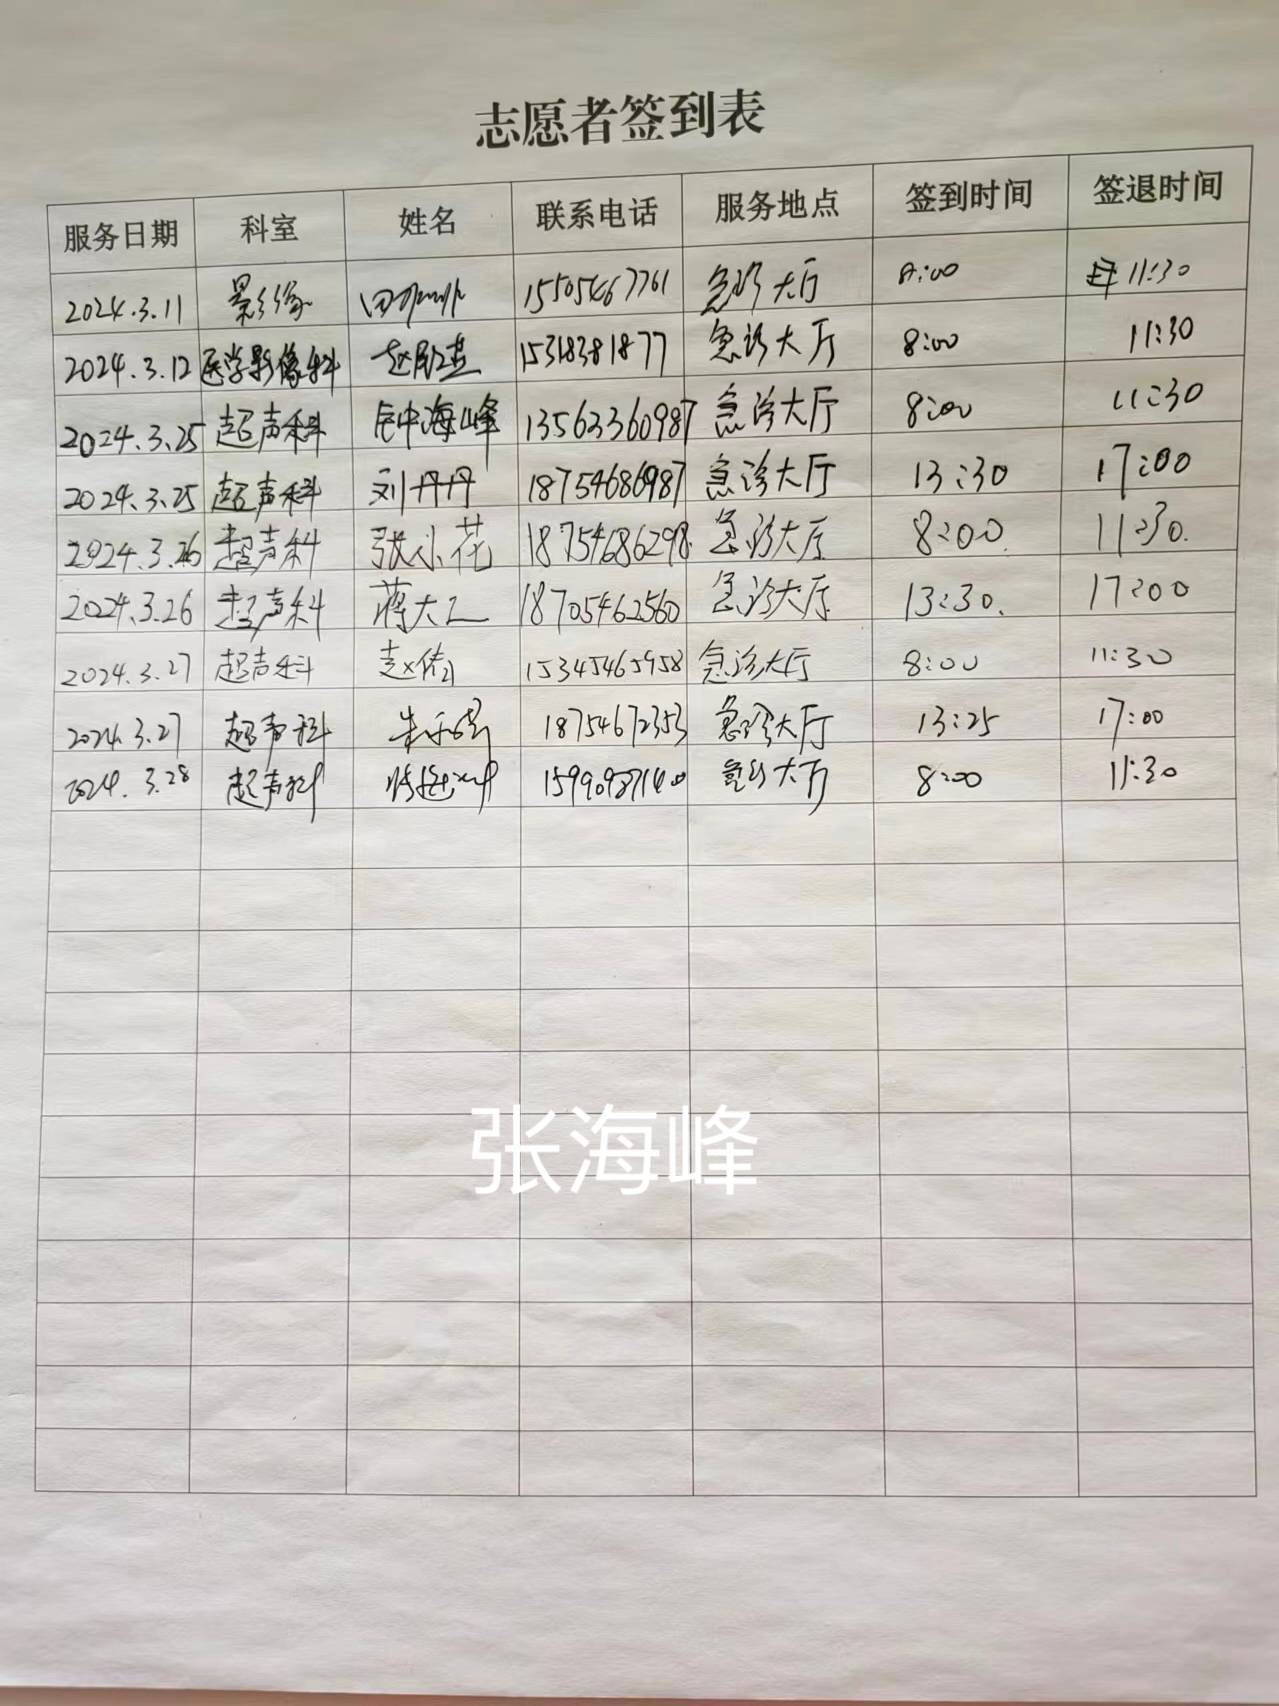 志愿者签到表
服务日期 科室 姓名 联系电话 服务地点 签到时间 签退时间
2024.3.11 影像 田 15505467761 急诊大厅 8:00 11:30
2024.3.12 医学影像科 赵 15318381877 急诊大厅 8:00 11:30
2024.3.25 超声科 钟海峰 13562360987 急诊大厅 8:00 11:30
2024.3.25 超声科 刘丹丹 18754686987 急诊大厅 13:30 17:00
2024.3.26 超声科 张小花 18754686298 急诊大厅 8:00. 11:30.
2024.3.26 超声科 蒋大 18705462560 急诊大厅 13:30. 17:00
2024.3.27 超声科 15345465958 急诊大厅 8:00 11:30
2024.3.27 超声科 朱 18754672353 急诊大厅 13:25 17:00
2024.3.28 超声科 急诊大厅 8:00 11:30
张海峰